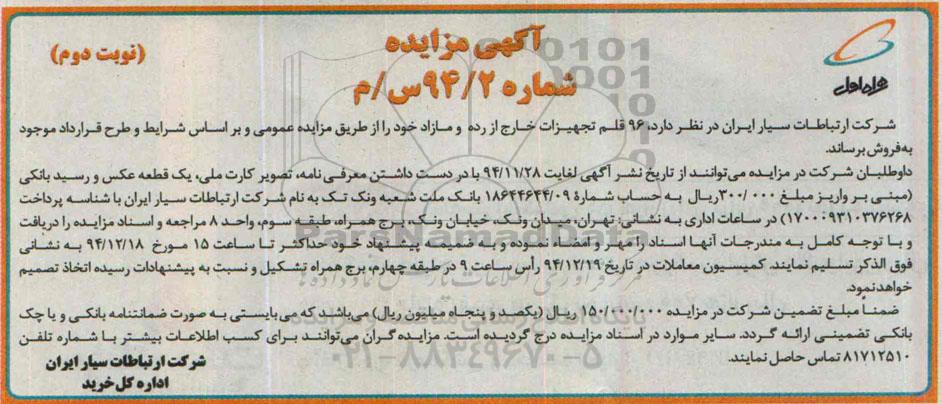 آگهی مزایده
(نوبت دوم)
شماره ۹۴/۲س/م
همراه اول
شرکت ارتباطات سیار ایران در نظر دارد، ۹۶ قلم تجهیزات خارج از رده و مازاد خود را از طریق مزایده عمومی و بر اساس شرایط و طرح قرارداد موجود
به فروش برساند.
داوطلبان شرکت در مزایده می‌توانند از تاریخ نشر آگهی لغایت ۹۴/۱۱/۲۸ با در دست داشتن معرفی نامه، تصویر کارت ملی، یک قطعه عکس و رسید بانکی
(مبنی بر واریز مبلغ ۳۰۰/۰۰۰ ریال به حساب شمارهٔ ۱۸۶۴۴۶۴۴/۰۹ بانک ملت شعبه ونک تک به نام شرکت ارتباطات سیار ایران با شناسه پرداخت
۱۷۰۰۰۹۳۱۰۳۷۶۲۶۸) در ساعات اداری به نشانی: تهران، میدان ونک، خیابان ونک، برج همراه، طبقه سوم، واحد ۸ مراجعه و اسناد مزایده را دریافت
و با توجه کامل به مندرجات آنها اسناد را مهر و امضاء نموده و به ضمیمه پیشنهاد خود حداکثر تا ساعت ۱۵ مورخ ۹۴/۱۲/۱۸ به نشانی
فوق الذکر تسلیم نمایند. کمیسیون معاملات در تاریخ ۹۴/۱۲/۱۹ رأس ساعت ۹ در طبقه چهارم، برج همراه تشکیل و نسبت به پیشنهادات رسیده اتخاذ تصمیم
خواهد نمود.
ضمناً مبلغ تضمین شرکت در مزایده ۱۵۰/۰۰۰/۰۰۰ ریال (یکصد و پنجاه میلیون ریال) می‌باشد که می‌بایستی به صورت ضمانتنامه بانکی و یا چک
بانکی تضمینی ارائه گردد. سایر موارد در اسناد مزایده درج گردیده است. مزایده گران می‌توانند برای کسب اطلاعات بیشتر با شماره تلفن
۸۱۷۱۲۵۱۰ تماس حاصل نمایند.
شرکت ارتباطات سیار ایران
اداره کل خرید
ParsNamadData
۰۲۱-۸۸۳۴۹۶۷۰-۵